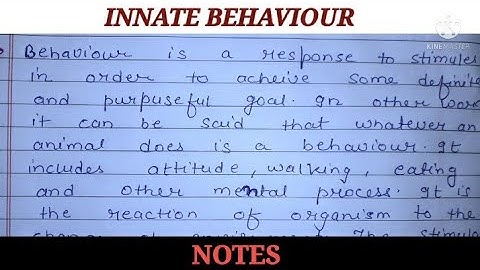 INNATE BEHAVIOUR
KINEMASTER
Behaviour is a response to stimules
in order to acheive some definite
and purpuseful goal. In other word
it can be said that whatever an
animal does is a behaviour. It
includes attitude, walking, eating
and other mental process. It is
the reaction of organism to the
The stimule
NOTES